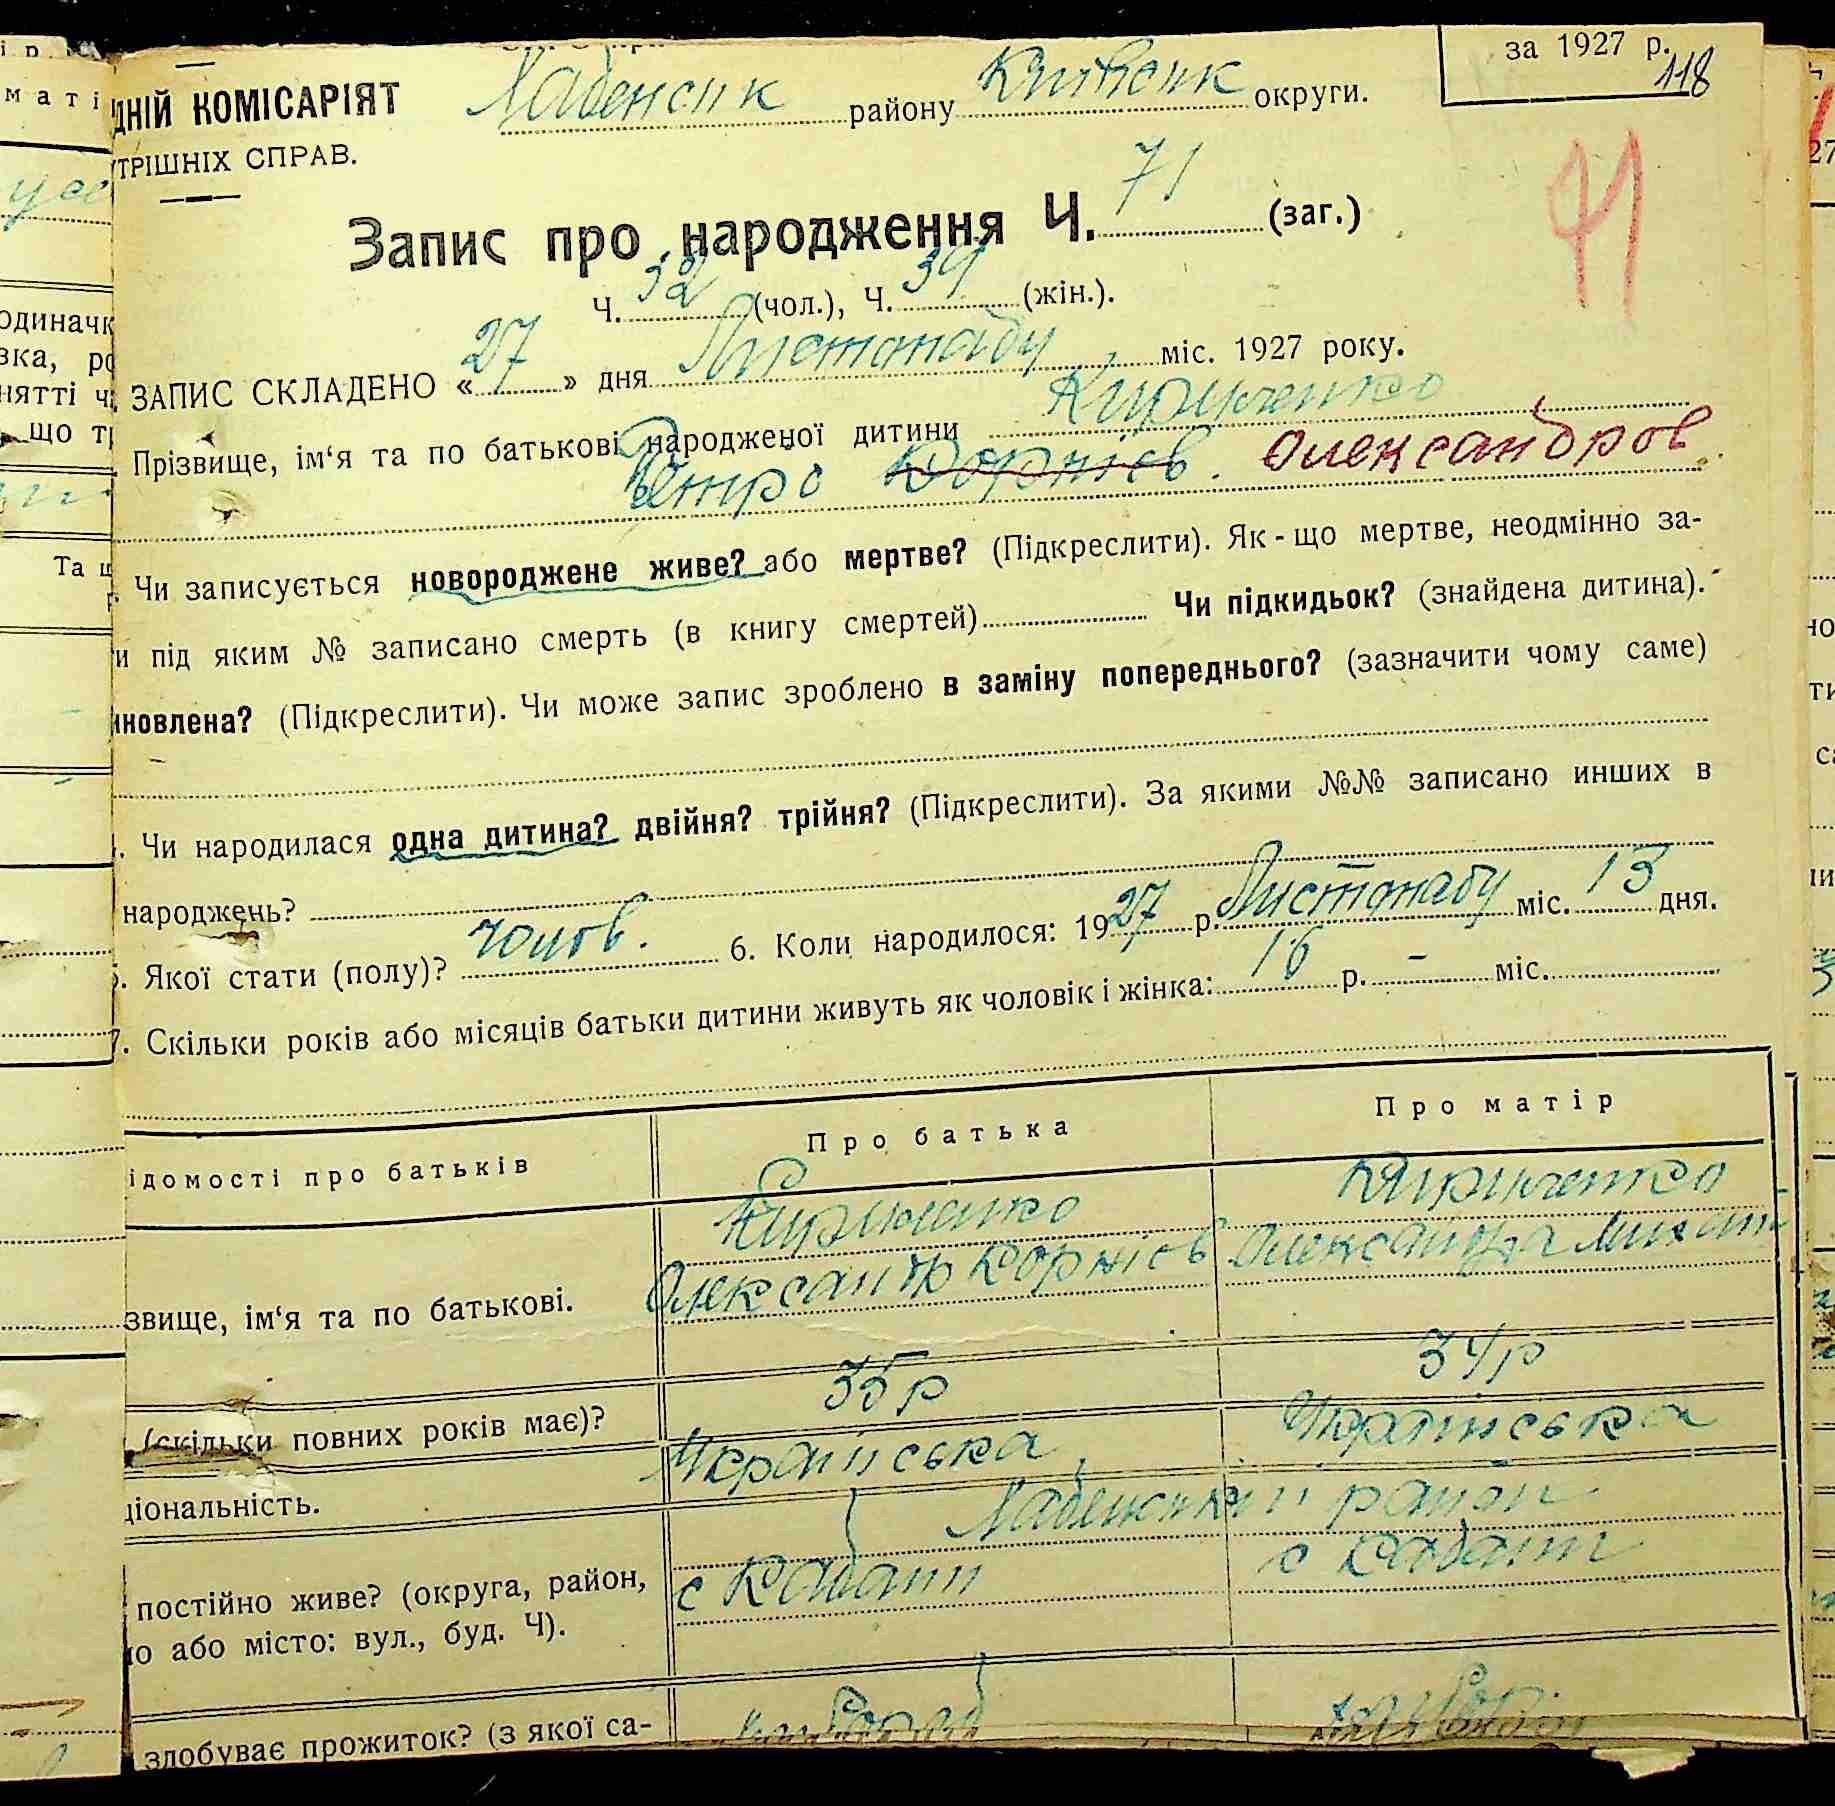 за 1927 р.
118
ДНІЙ КОМІСАРІЯТ Хабенськ району Київськ округи.
ТРІШНІХ СПРАВ.
71
Запис про народження Ч. 71 (заг.)
Ч. 32 (чол.), Ч. 39 (жін.).
ЗАПИС СКЛАДЕНО « 27 » дня Листопаду міс. 1927 року.
Прізвище, ім‘я та по батькові народженої дитини Кириченко
Петро Корнієв. Олександров
Чи записується новороджене живе? або мертве? (Підкреслити). Як-що мертве, неодмінно за-
и під яким № записано смерть (в книгу смертей) Чи підкидьок? (знайдена дитина).
иновлена? (Підкреслити). Чи може запис зроблено в заміну попереднього? (зазначити чому саме)
–
. Чи народилася одна дитина? двійня? трійня? (Підкреслити). За якими №№ записано инших в
народжень?
. Якої стати (полу)? чолов. 6. Коли народилося: 1927 р. Листопаду міс. 13 дня.
7. Скільки років або місяців батьки дитини живуть як чоловік і жінка: 16 р. – міс.
ідомості про батьків Про батька Про матір
Кириченко Кириченко
звище, ім‘я та по батькові. Олександр Корнієв Олександра Михайл
(скільки повних років має)? 35 р 34 р
ціональність. Українська Українська
Хабенський район
постійно живе? (округа, район, с Кабани с Кабани
о або місто: вул., буд. Ч).
здобуває прожиток? (з якої са-